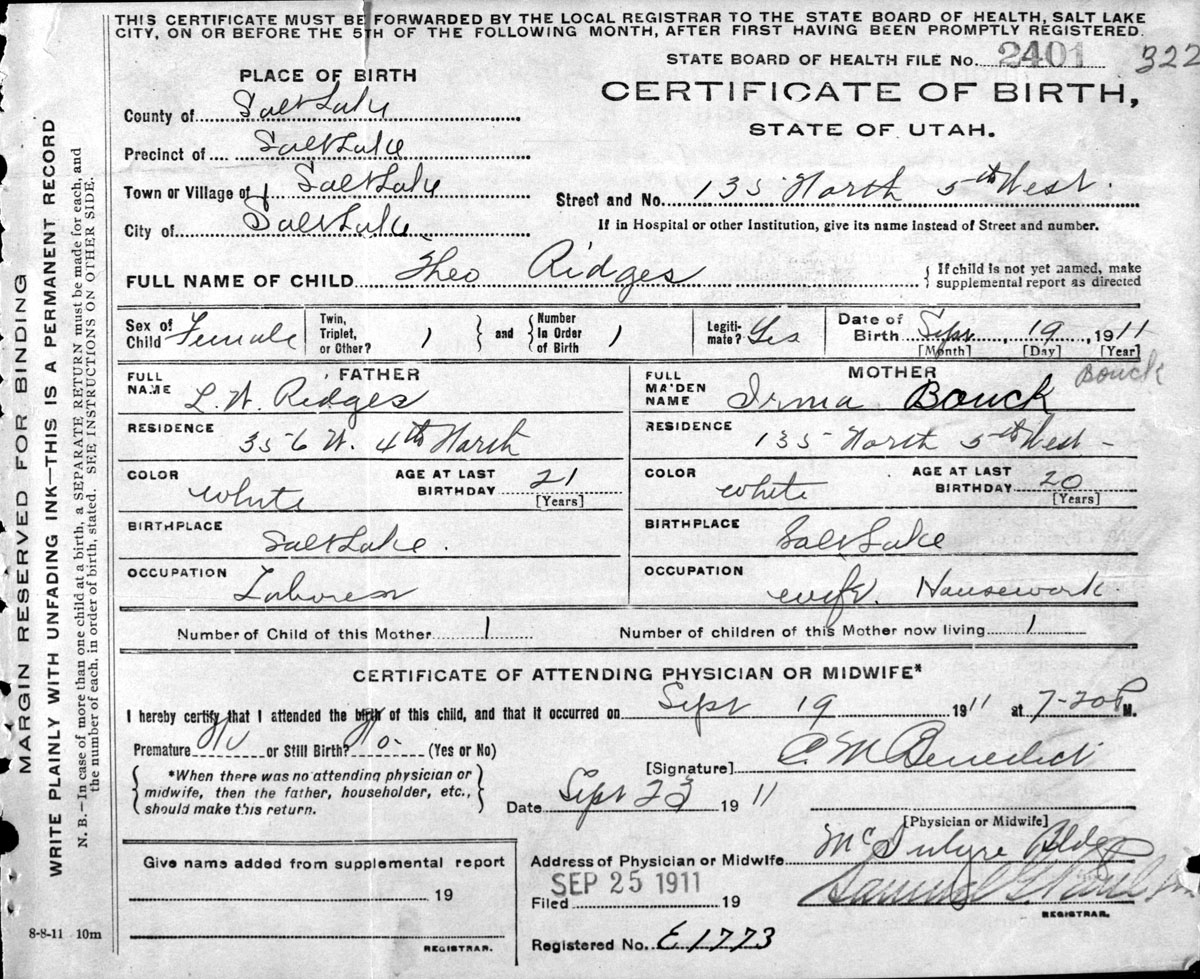 THIS CERTIFICATE MUST BE FORWARDED BY THE LOCAL REGISTRAR TO THE STATE BOARD OF HEALTH, SALT LAKE
CITY, ON OR BEFORE THE 5TH OF THE FOLLOWING MONTH, AFTER FIRST HAVING BEEN PROMPTLY REGISTERED.
STATE BOARD OF HEALTH FILE No. 2401 322
PLACE OF BIRTH
CERTIFICATE OF BIRTH,
STATE OF UTAH.
County of Salt Lake
Precinct of Salt Lake
Town or Village of Salt Lake
Street and No. 135 North 5th West.
City of Salt Lake
If in Hospital or other Institution, give its name instead of Street and number.
FULL NAME OF CHILD Theo Ridges
{ If child is not yet named, make
supplemental report as directed
Sex of Child Female
Twin, Triplet, or Other? 1
} and {
Number In Order of Birth 1
Legiti-mate? Yes
Date of Birth Sept 19, 1911
[Month] [Day] [Year]
FATHER
FULL NAME L. W. Ridges
MOTHER
Bouck
FULL MAIDEN NAME Irma Bouck
RESIDENCE 356 W. 4th North
RESIDENCE 135 North 5th West -
COLOR White
AGE AT LAST BIRTHDAY 21
[Years]
COLOR White
AGE AT LAST BIRTHDAY 20
[Years]
BIRTHPLACE Salt Lake.
BIRTHPLACE Salt Lake
OCCUPATION Laborer
OCCUPATION wife. Housework.
Number of Child of this Mother 1
Number of children of this Mother now living 1
CERTIFICATE OF ATTENDING PHYSICIAN OR MIDWIFE*
I hereby certify that I attended the birth of this child, and that it occurred on Sept 19 1911 at 7-20 P M.
Premature No or Still Birth? No- (Yes or No)
[Signature] C. M Benedict
*When there was no attending physician or
midwife, then the father, householder, etc.,
should make this return.
Date Sept 23 1911
[Physician or Midwife]
Give name added from supplemental report
19
REGISTRAR.
Address of Physician or Midwife McIntyre Bldg
Filed SEP 25 1911 19
Samuel G. Paul
REGISTRAR.
Registered No. E1773
8-8-11 10m
MARGIN RESERVED FOR BINDING
WRITE PLAINLY WITH UNFADING INK—THIS IS A PERMANENT RECORD
N. B.—In case of more than one child at a birth, a SEPARATE RETURN must be made for each, and
the number of each, in order of birth, stated. SEE INSTRUCTIONS ON OTHER SIDE.